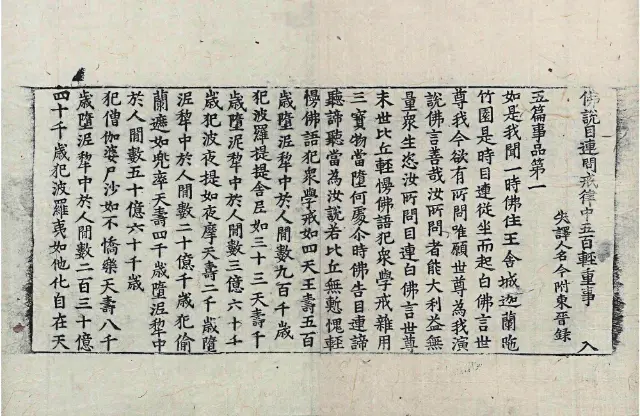 佛說目連問戒律中五百輕重事　入
失譯人名今附東晉錄
五篇事品第一
如是我聞一時佛住王舍城迦蘭陁
竹園是時目連從坐而起白佛言世
尊我今欲有所問唯願世尊為我演
說佛言善哉汝所問者能大利益無
量衆生恣汝所問目連白佛言世尊
末世比丘輕慢佛語犯衆學戒雜用
三寶物當墮何處尒時佛告目連諦
聽諦聽當為汝說若比丘無慙愧輕
慢佛語犯衆學戒如四天王壽五百
歲墮泥犂中於人間數九百千歲
犯波羅提提舍尼如三十三天壽千
歲墮泥犂中於人間數三億六十千
歲犯波夜提如夜摩天壽二千歲墮
泥犂中於人間數二十億千歲犯偷
蘭遮如兜率天壽四千歲墮泥犂中
於人間數五十億六十千歲
犯僧伽婆尸沙如不憍樂天壽八千
歲墮泥犂中於人間數二百三十億
四十千歲犯波羅夷如他化自在天